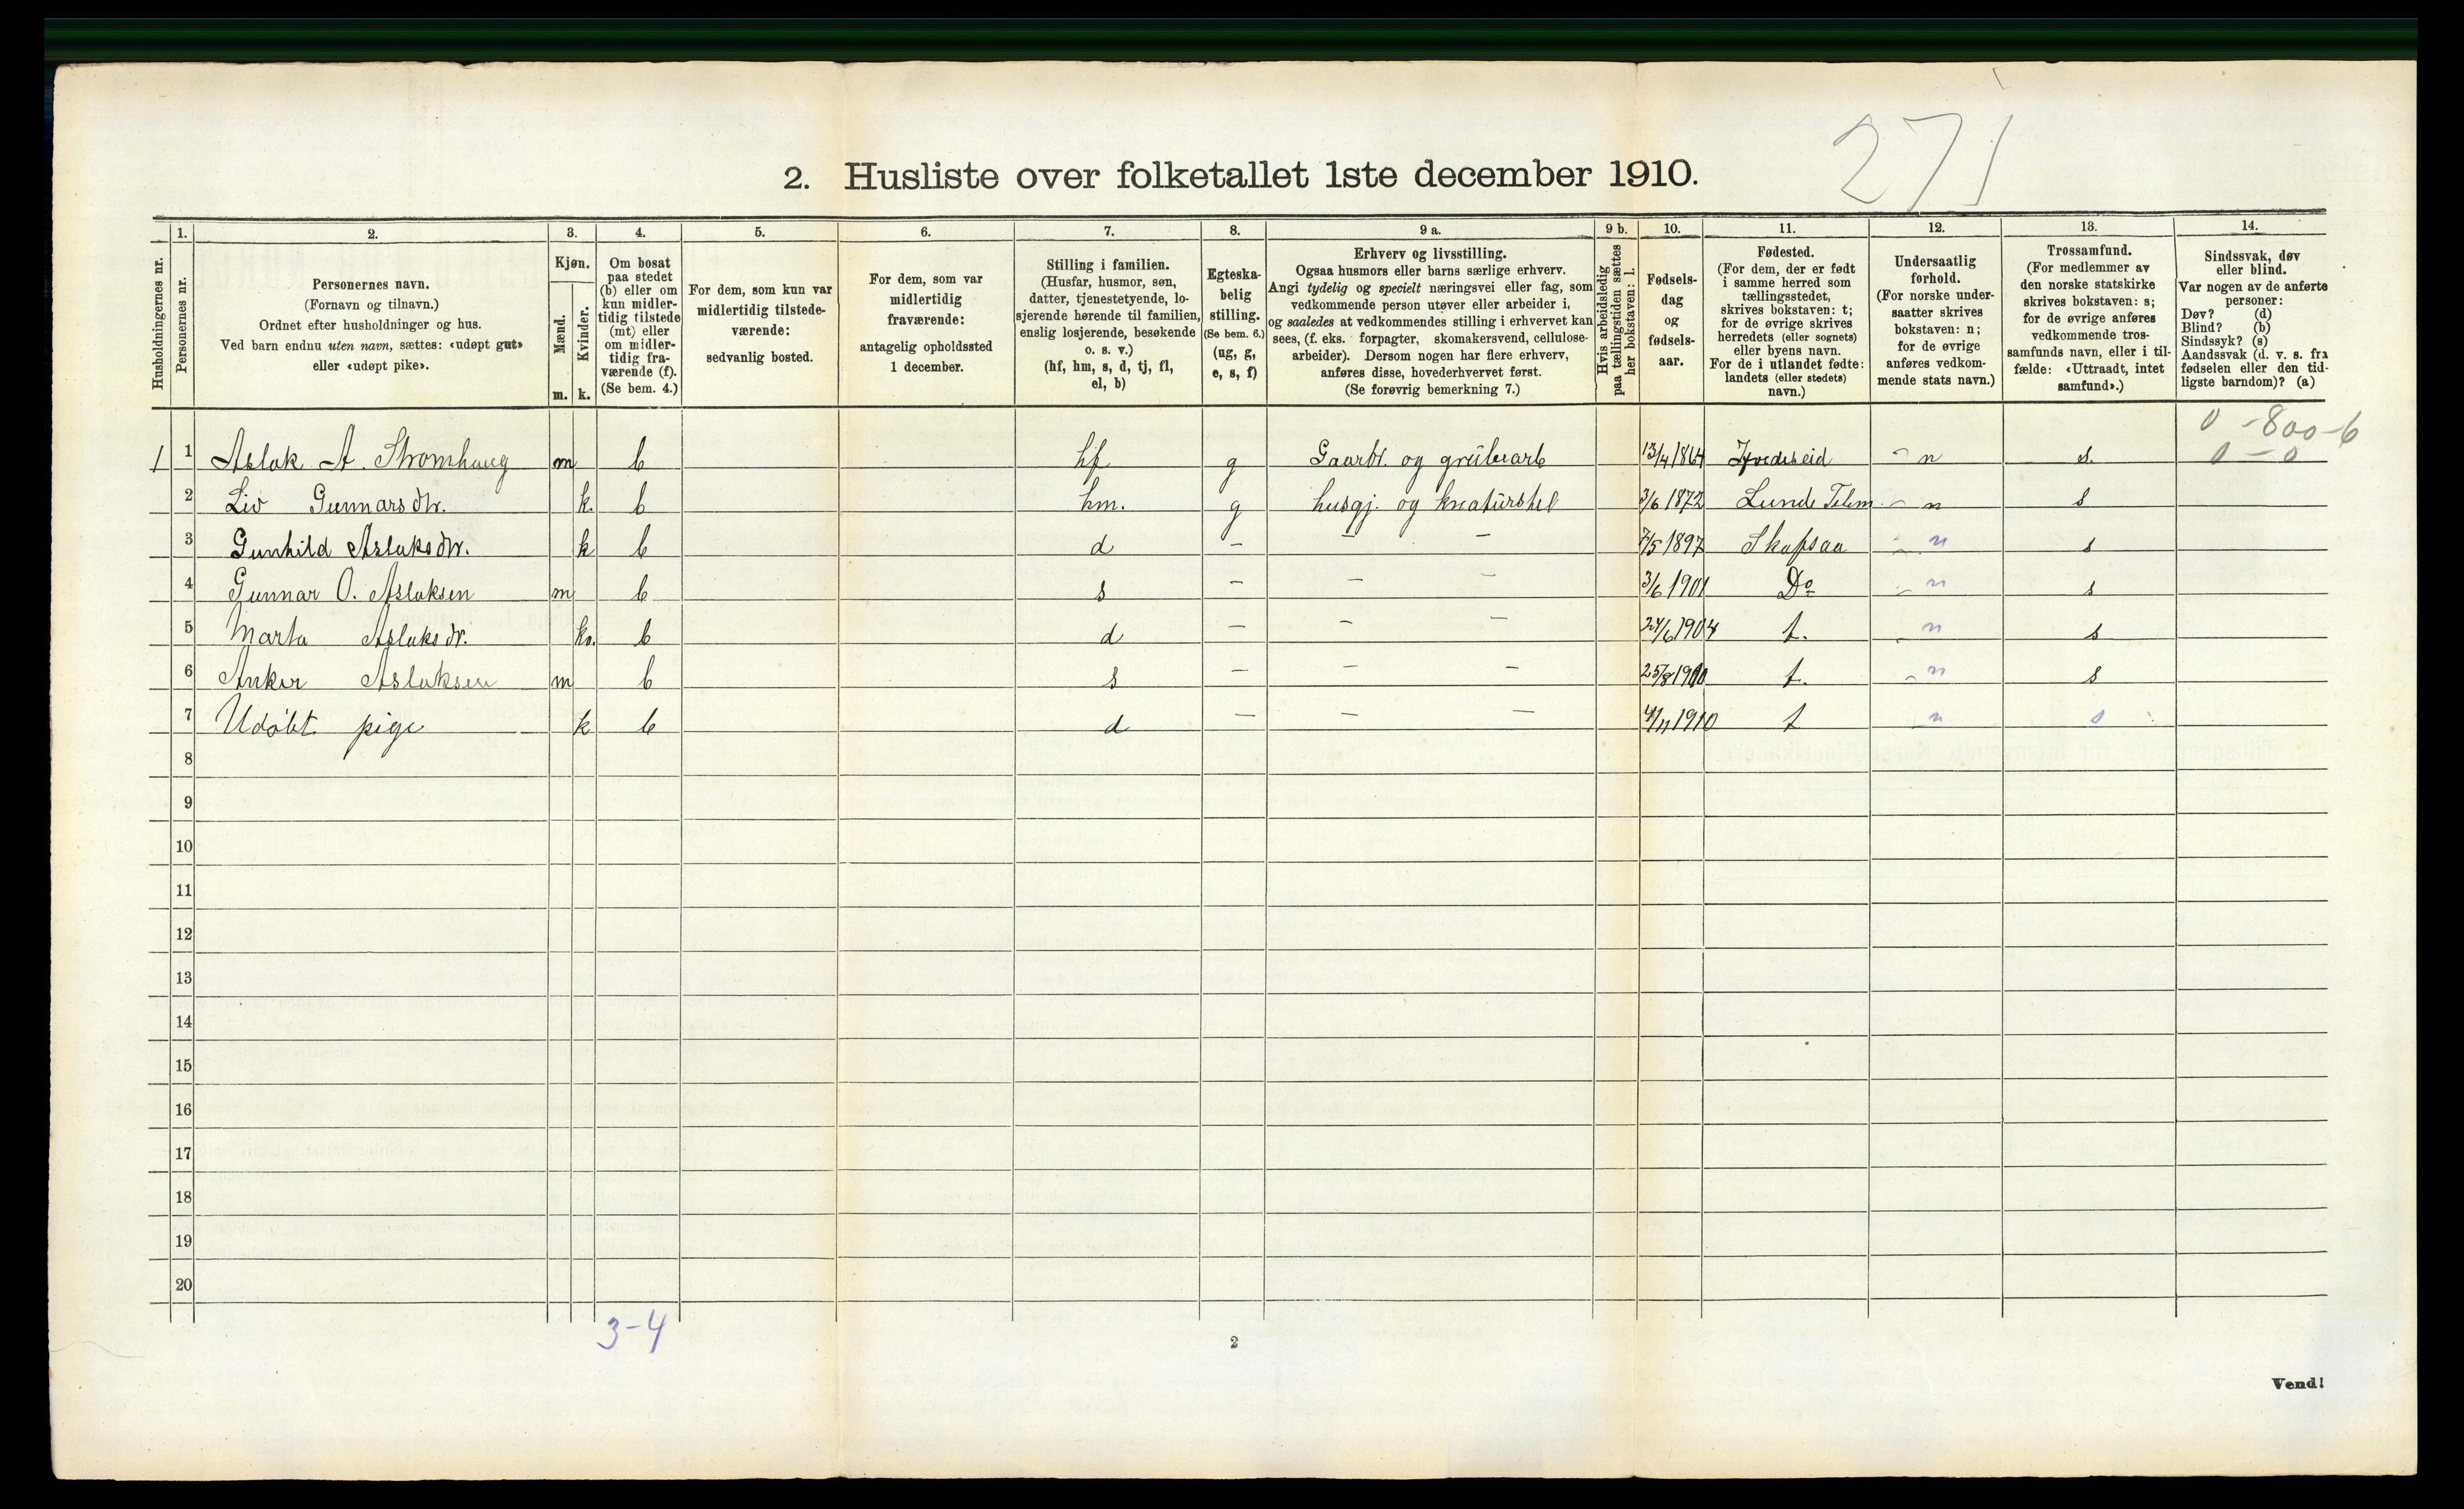 271
2. Husliste over folketallet 1ste december 1910.
Husholdningernes nr.
1.
Personernes nr.
2.
Personernes navn.
(Fornavn og tilnavn.)
Ordnet efter husholdninger og hus.
Ved barn endnu uten navn, sættes: «udøpt gut»
eller «udøpt pike».
3.
Kjøn.
Mænd.
Kvinder.
m. k.
4.
Om bosat
paa stedet
(b) eller om
kun midler-
tidig tilstede
(mt) eller
om midler-
tidig fra-
værende (f).
(Se bem. 4.)
5.
For dem, som kun var
midlertidig tilstede-
værende:
sedvanlig bosted.
6.
For dem, som var
midlertidig
fraværende:
antagelig opholdssted
1 december.
7.
Stilling i familien.
(Husfar, husmor, søn,
datter, tjenestetyende, lo-
sjerende hørende til familien,
enslig losjerende, besøkende
o. s. v.)
(hf, hm, s, d, tj, fl,
el, b)
8.
Egteska-
belig
stilling.
(Se bem. 6.)
(ug, g,
e, s, f)
9 a.
Erhverv og livsstilling.
Ogsaa husmors eller barns særlige erhverv.
Angi tydelig og specielt næringsvei eller fag, som
vedkommende person utøver eller arbeider i,
og saaledes at vedkommendes stilling i erhvervet kan
sees, (f. eks. forpagter, skomakersvend, cellulose-
arbeider). Dersom nogen har flere erhverv,
anføres disse, hovederhvervet først.
(Se forøvrig bemerkning 7.)
9 b.
Hvis arbeidsledig
paa tællingstiden sættes
her bokstaven: l.
10.
Fødsels-
dag
og
fødsels-
aar.
11.
Fødested.
(For dem, der er født
i samme herred som
tællingsstedet,
skrives bokstaven: t;
for de øvrige skrives
herredets (eller sognets)
eller byens navn.
For de i utlandet fødte:
landets (eller stedets)
navn.)
12.
Undersaatlig
forhold.
(For norske under-
saatter skrives
bokstaven: n;
for de øvrige
anføres vedkom-
mende stats navn.)
13.
Trossamfund.
(For medlemmer av
den norske statskirke
skrives bokstaven: s;
for de øvrige anføres
vedkommende tros-
samfunds navn, eller i til-
fælde: «Uttraadt, intet
samfund».)
14.
Sindssvak, døv
eller blind.
Var nogen av de anførte
personer:
Døv? (d)
Blind? (b)
Sindssyk? (s)
Aandssvak (d. v. s. fra
fødselen eller den tid-
ligste barndom)? (a)
0 - 800 - 6
0 - 0
1 1 Aslak A. Stromhaug m b hf g Gaardbr. og grubearb 13/4 1864 Kvedeseid n s.
2 Liv Gunnarsdtr. k. b hm. g husgj. og kreaturstel 3/6 1872 Lunde Telem. n s
3 Gunhild Aslaksdtr. k b d - - - 7/5 1897 Skafsaa n s
4 Gunnar O. Aslaksen m b s - - - 3/6 1901 Do n s
5 Marta Aslaksdr. k. b d - - - 24/6 1904 t. n s
6 Anker Aslaksen m b s - - - t. n s
7 Udöbt pige k b d - - - 4/11 1910 t n s
8
9
10
11
12
13
14
15
16
17
18
19
20
3-4
2
Vend!